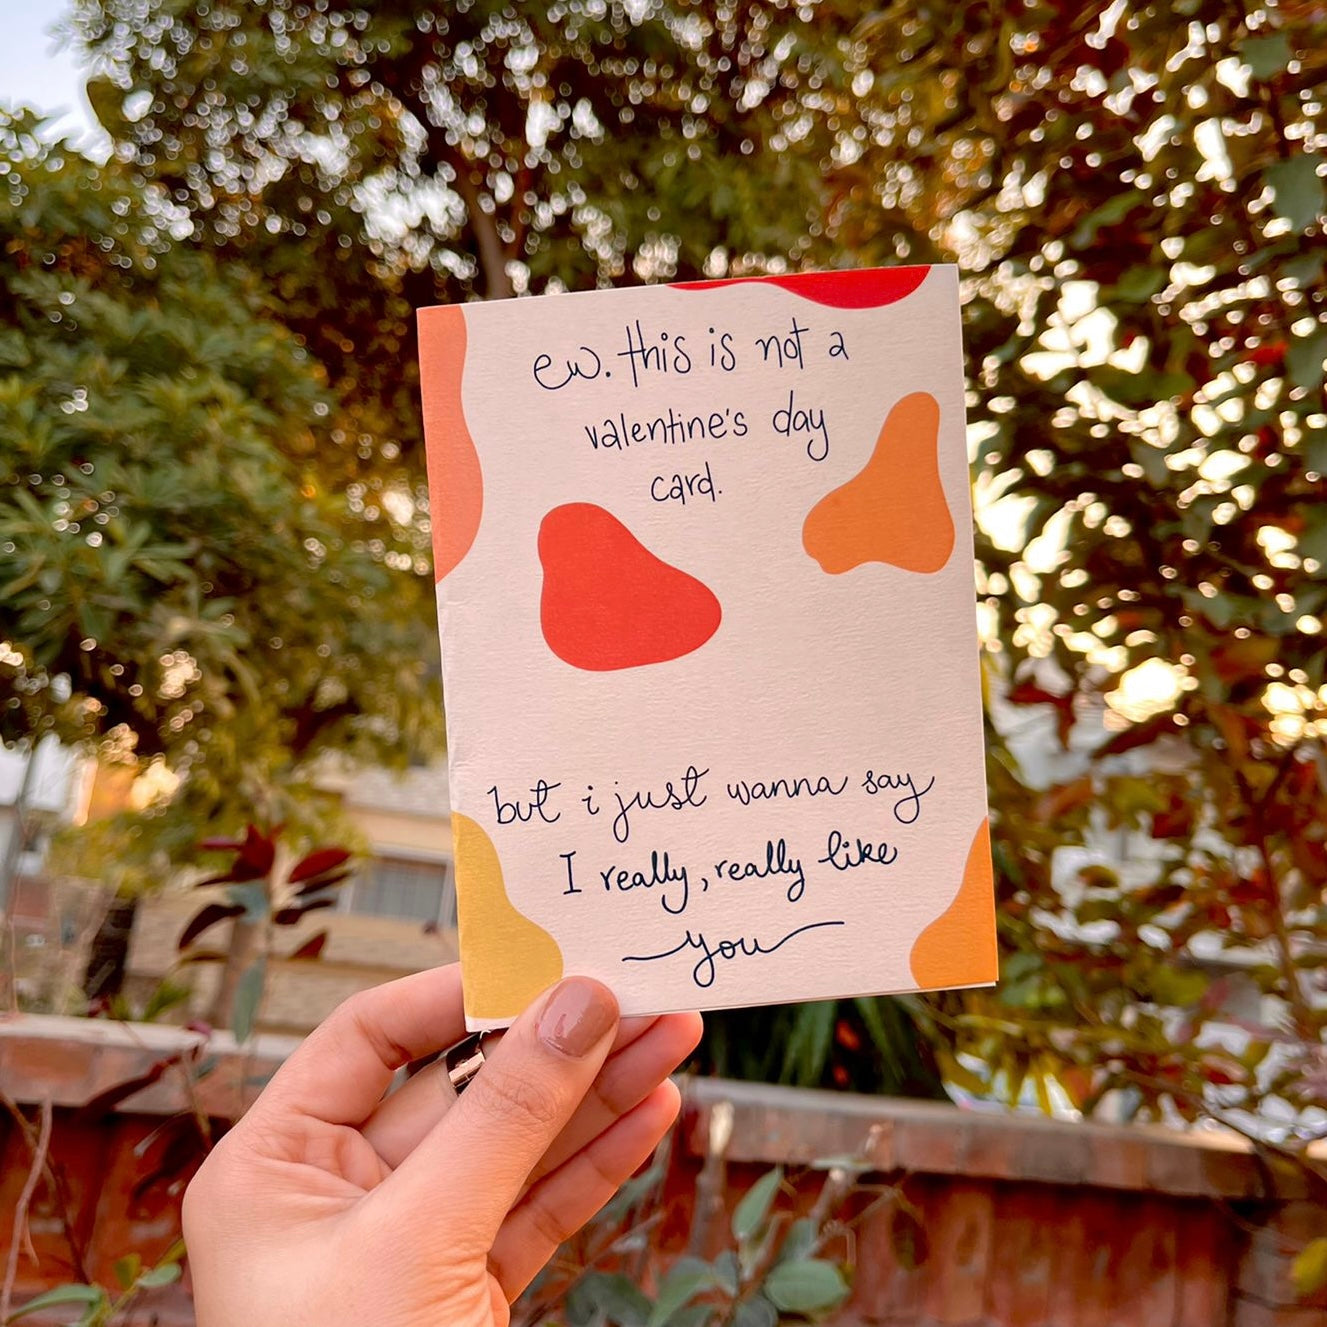 ew. this is not a
valentine's day
card.
but i just wanna say
I really, really like
you